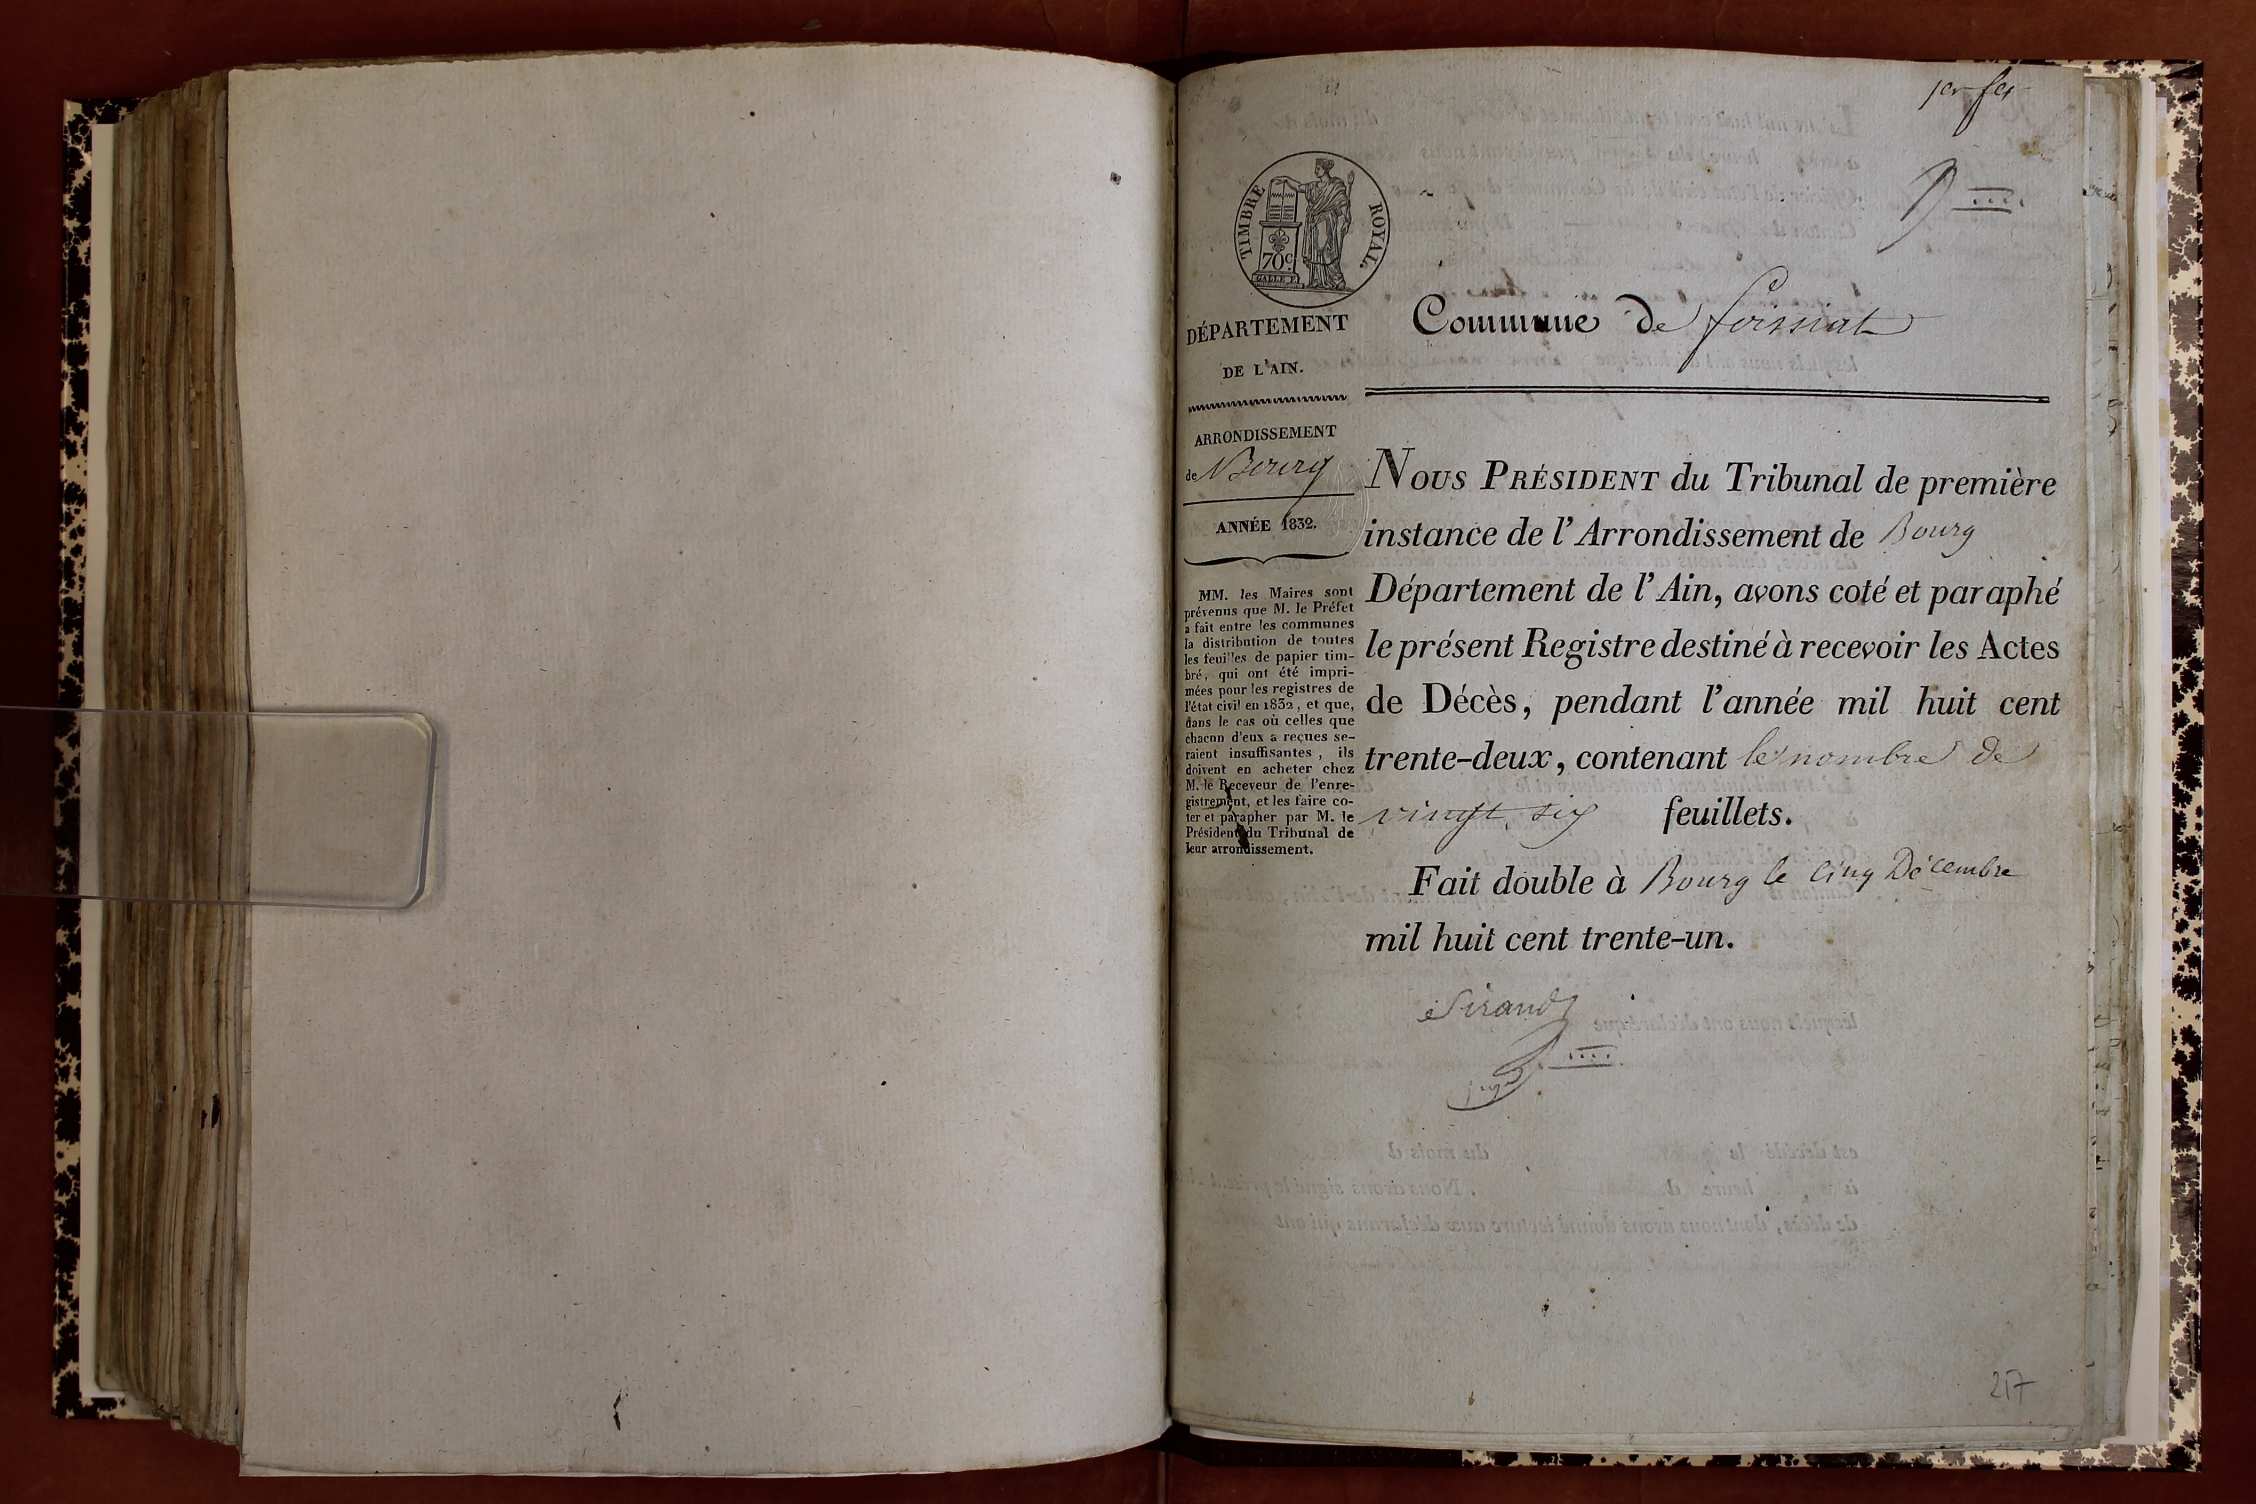 1er fet
TIMBRE ROYAL.
70c.
GALLE F.
DÉPARTEMENT
DE L'AIN.
ARRONDISSEMENT
de Bourg
ANNÉE 1832.
MM. les Maires sont
prévenus que M. le Préfet
a fait entre les communes
la distribution de toutes
les feuilles de papier tim-
bré, qui ont été impri-
mées pour les registres de
l'état civil en 1832, et que,
dans le cas où celles que
chacun d'eux a reçues se-
raient insuffisantes, ils
doivent en acheter chez
M. le Receveur de l'enre-
gistrement, et les faire co-
ter et parapher par M. le
Président du Tribunal de
leur arrondissement.
Commune de foissiat
NOUS PRÉSIDENT du Tribunal de première
instance de l'Arrondissement de Bourg
Département de l'Ain, avons coté et paraphé
le présent Registre destiné à recevoir les Actes
de Décès, pendant l'année mil huit cent
trente-deux, contenant le nombre de
vingt six feuillets.
Fait double à Bourg le cinq Décembre
mil huit cent trente-un.
Sirand
juge
217